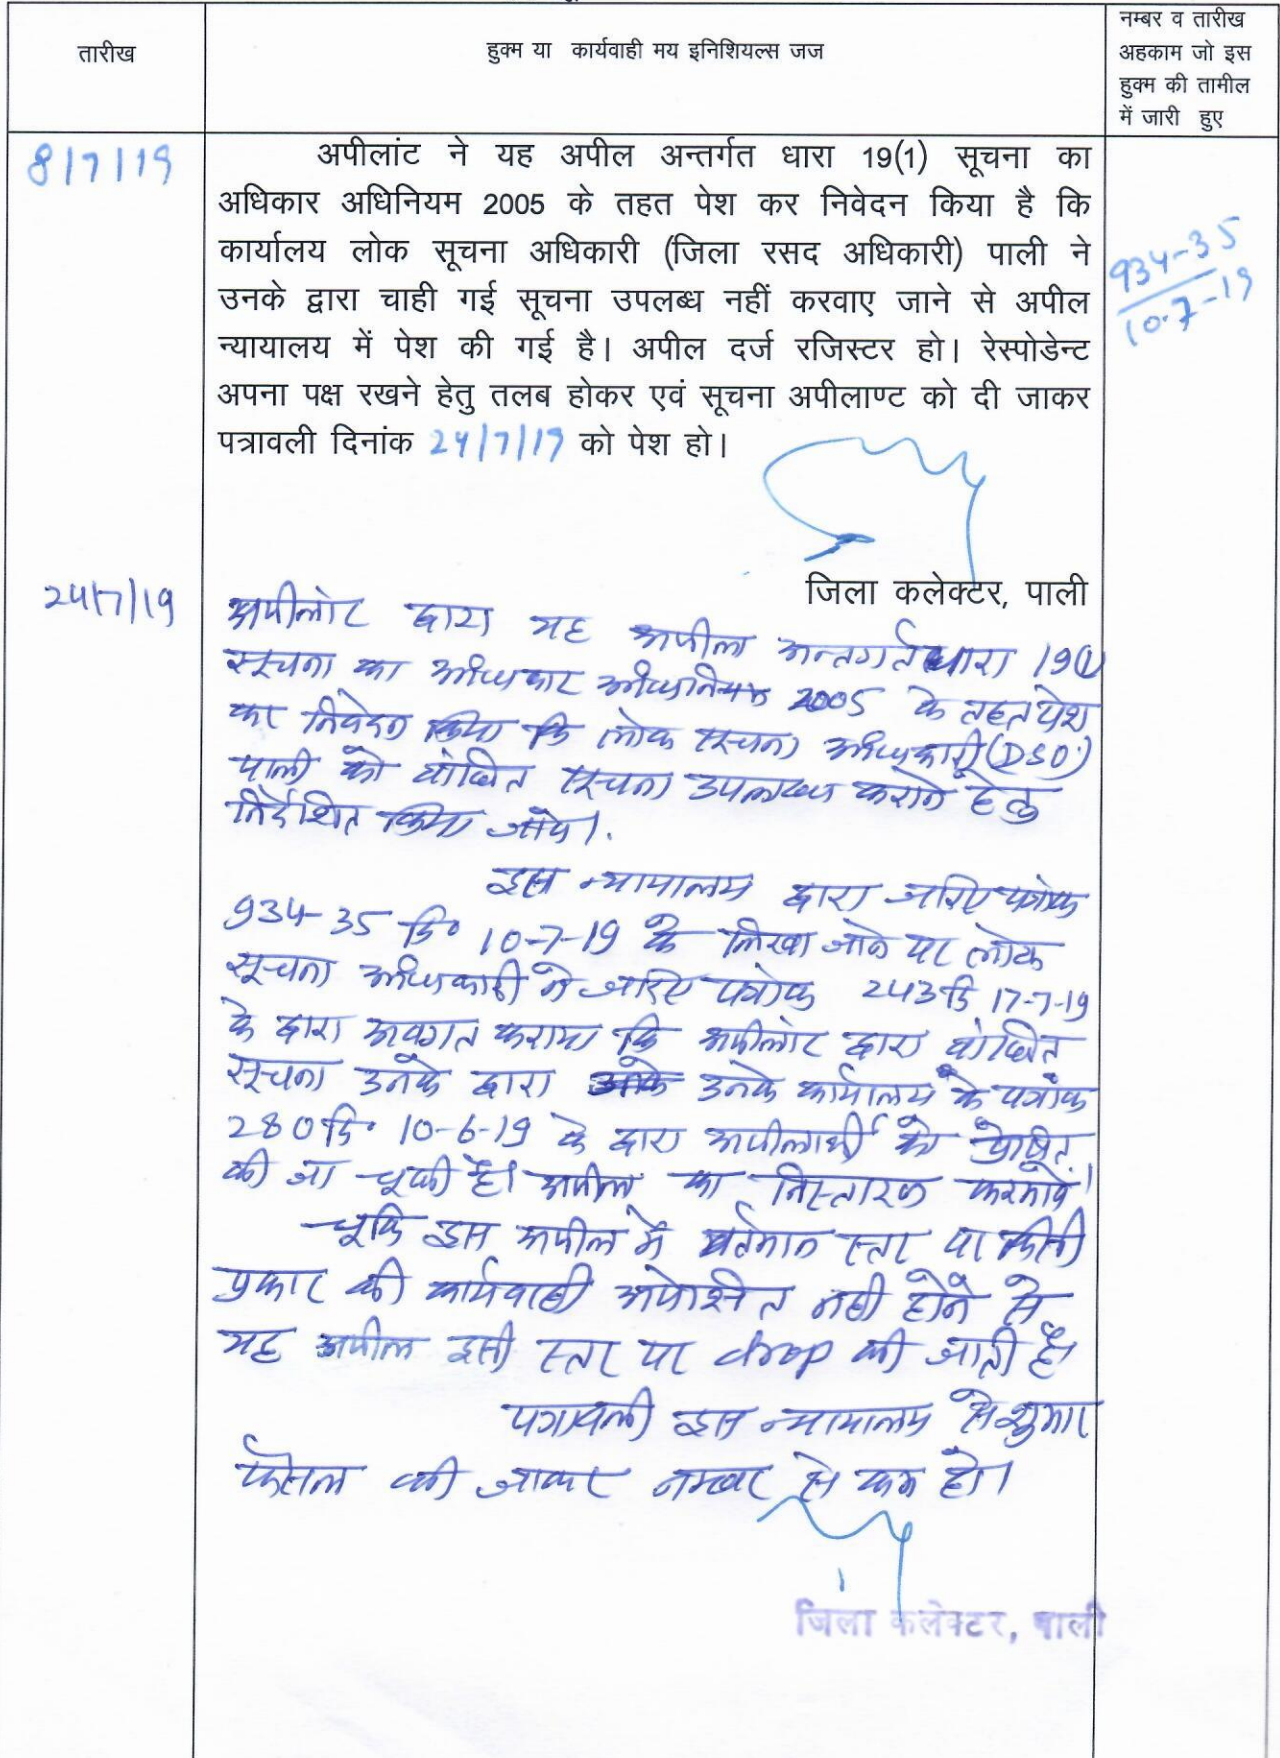 तारीख
हुक्म या कार्यवाही मय इनिशियल्स जज
नम्बर व तारीख
अहकाम जो इस
हुक्म की तामील
में जारी हुए
8/7/19
अपीलांट ने यह अपील अन्तर्गत धारा 19(1) सूचना का
अधिकार अधिनियम 2005 के तहत पेश कर निवेदन किया है कि
कार्यालय लोक सूचना अधिकारी (जिला रसद अधिकारी) पाली ने
उनके द्वारा चाही गई सूचना उपलब्ध नहीं करवाए जाने से अपील
न्यायालय में पेश की गई है। अपील दर्ज रजिस्टर हो। रेस्पोडेन्ट
अपना पक्ष रखने हेतु तलब होकर एवं सूचना अपीलाण्ट को दी जाकर
पत्रावली दिनांक 24/7/19 को पेश हो।
934-35
10-7-19
जिला कलेक्टर, पाली
24/7/19
अपीलांट द्वारा यह अपील अन्तर्गत धारा 19(1)
सूचना का अधिकार अधिनियम 2005 के तहत पेश
कर निवेदन किया कि लोक सूचना अधिकारी (DSO)
पाली को वांछित सूचना उपलब्ध कराने हेतु
निर्देशित किया जावे।
इस न्यायालय द्वारा जरिए पत्रांक
934-35 दि० 10-7-19 के लिखा जाने पर लोक
सूचना अधिकारी ने जरिए पत्रांक 243 दि 17-7-19
के द्वारा अवगत कराया कि अपीलांट द्वारा वांछित
सूचना उनके द्वारा उनके कार्यालय के पत्रांक
280 दि० 10-6-19 के द्वारा अपीलार्थी को प्रेषित
की जा चूकी है। अपील का निस्तारण करमावे।
चूकि इस अपील में वर्तमान स्तर पर किसी
प्रकार की कार्यवाही अपेक्षित नही होने से
यह अपील इसी स्तर पर drop की जाती है।
पत्रावली इस न्यायालय से शुमार
फैसल की जाकर नम्बर से कम हो।
जिला कलेक्टर, पाली